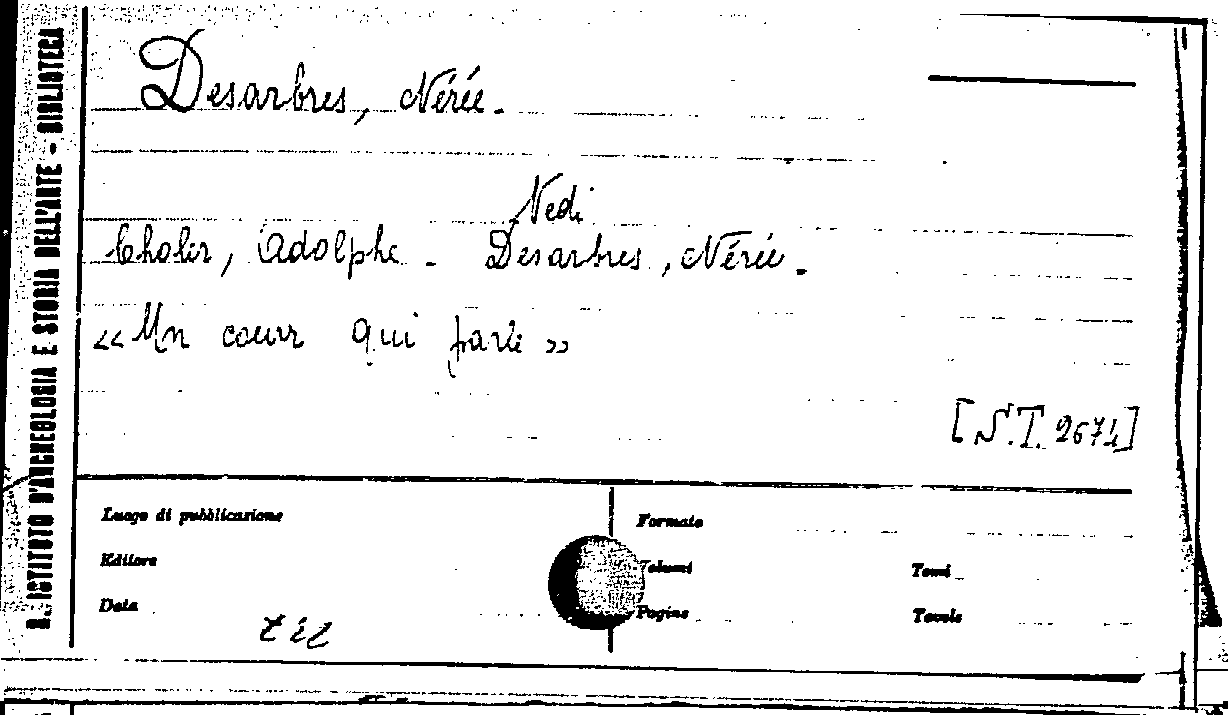 R. ISTITUTO D'ARCHEOLOGIA E STORIA DELL'ARTE - BIBLIOTECA
Desarbres, Nérée.
Vedi
Choler, Adolphe - Desarbres, Nérée.
«Un coeur qui parle»
[N.T. 2674]
Luogo di pubblicazione
Formato
Editore
Volumi
Tomi
Data
Pagine
Tavole